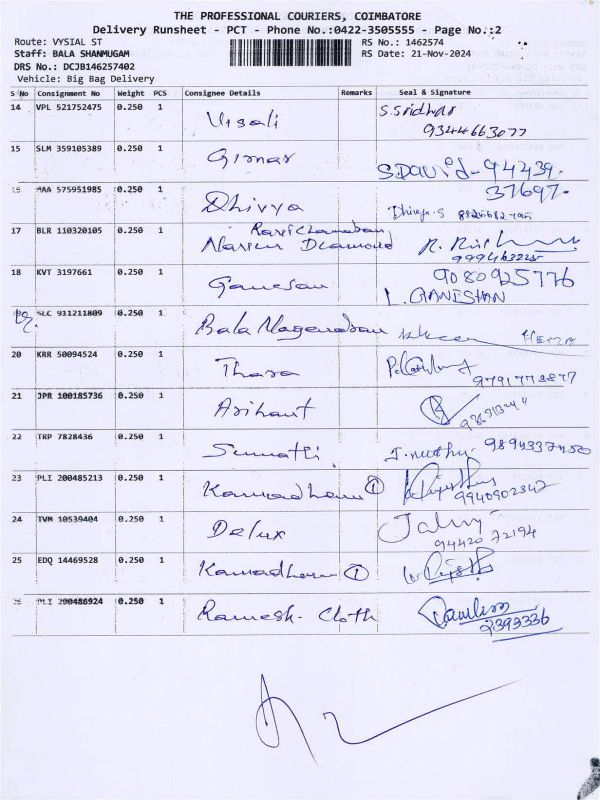 THE PROFESSIONAL COURIERS, COIMBATORE
Delivery Runsheet - PCT - Phone No.:0422-3505555 - Page No.:2
Route: VYSIAL ST RS No.: 1462574
Staff: BALA SHANMUGAM RS Date: 21-Nov-2024
DRS No.: DCJB146257402
Vehicle: Big Bag Delivery
S No Consignment No Weight PCS Consignee Details Remarks Seal & Signature
14 VPL 521752475 0.250 1 Visali S.Sridhar
9344663077
15 SLM 359105389 0.250 1 Girnar S.David-94439
37697.
16 MAA 575951985 0.250 1 Dhivya Dhivya.S
17 BLR 110320105 0.250 1
Diamond
18 KVT 3197661 0.250 1 Ganesan 9080925776
L. GANISHAN
SLC 911211809 0.250 1 Bala Nagendran HEMA
20 KRR 50094524 0.250 1 Thara
9791772877
21 JPR 100185736 0.250 1 Arihant
22 TRP 7828436 0.250 1 Sumathi 9894337450
23 PLI 200485213 0.250 1 Kamadhenu 1
9940902342
24 TVM 10539404 0.250 1 Delux
94420 72194
25 EDQ 14469528 0.250 1 Kamadhenu 1
26 PLI 200486924 0.250 1 Ramesh. Cloth
2393336